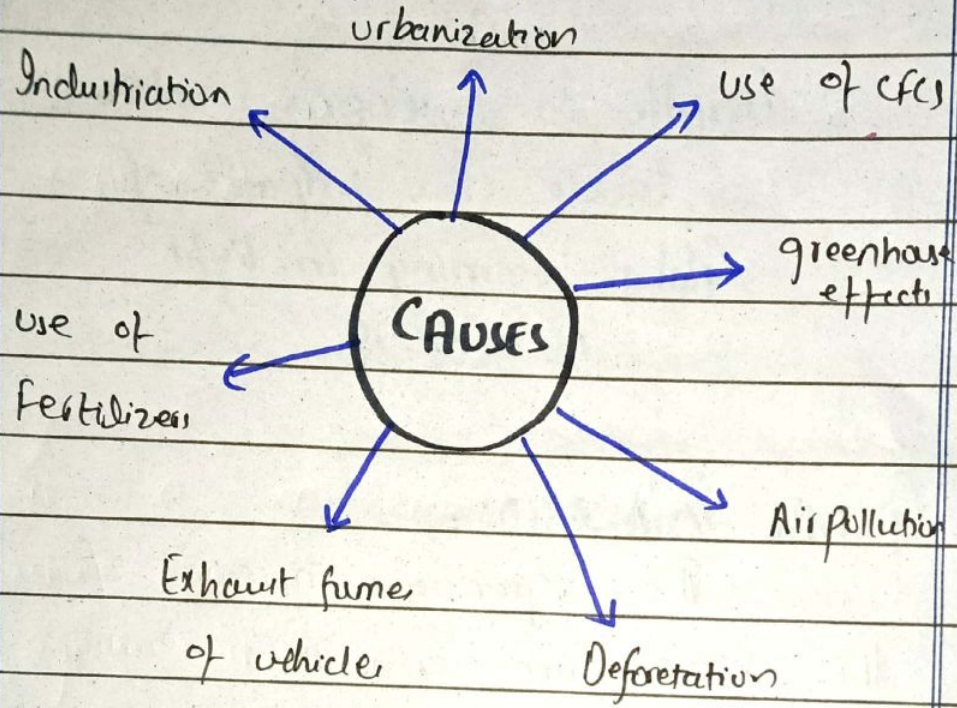 urbanization
Industriation
use of CFCs
greenhouse
effects
CAUSES
use of
Fertilizers
Air pollution
Exhaust fumes
of vehicles
Deforetation